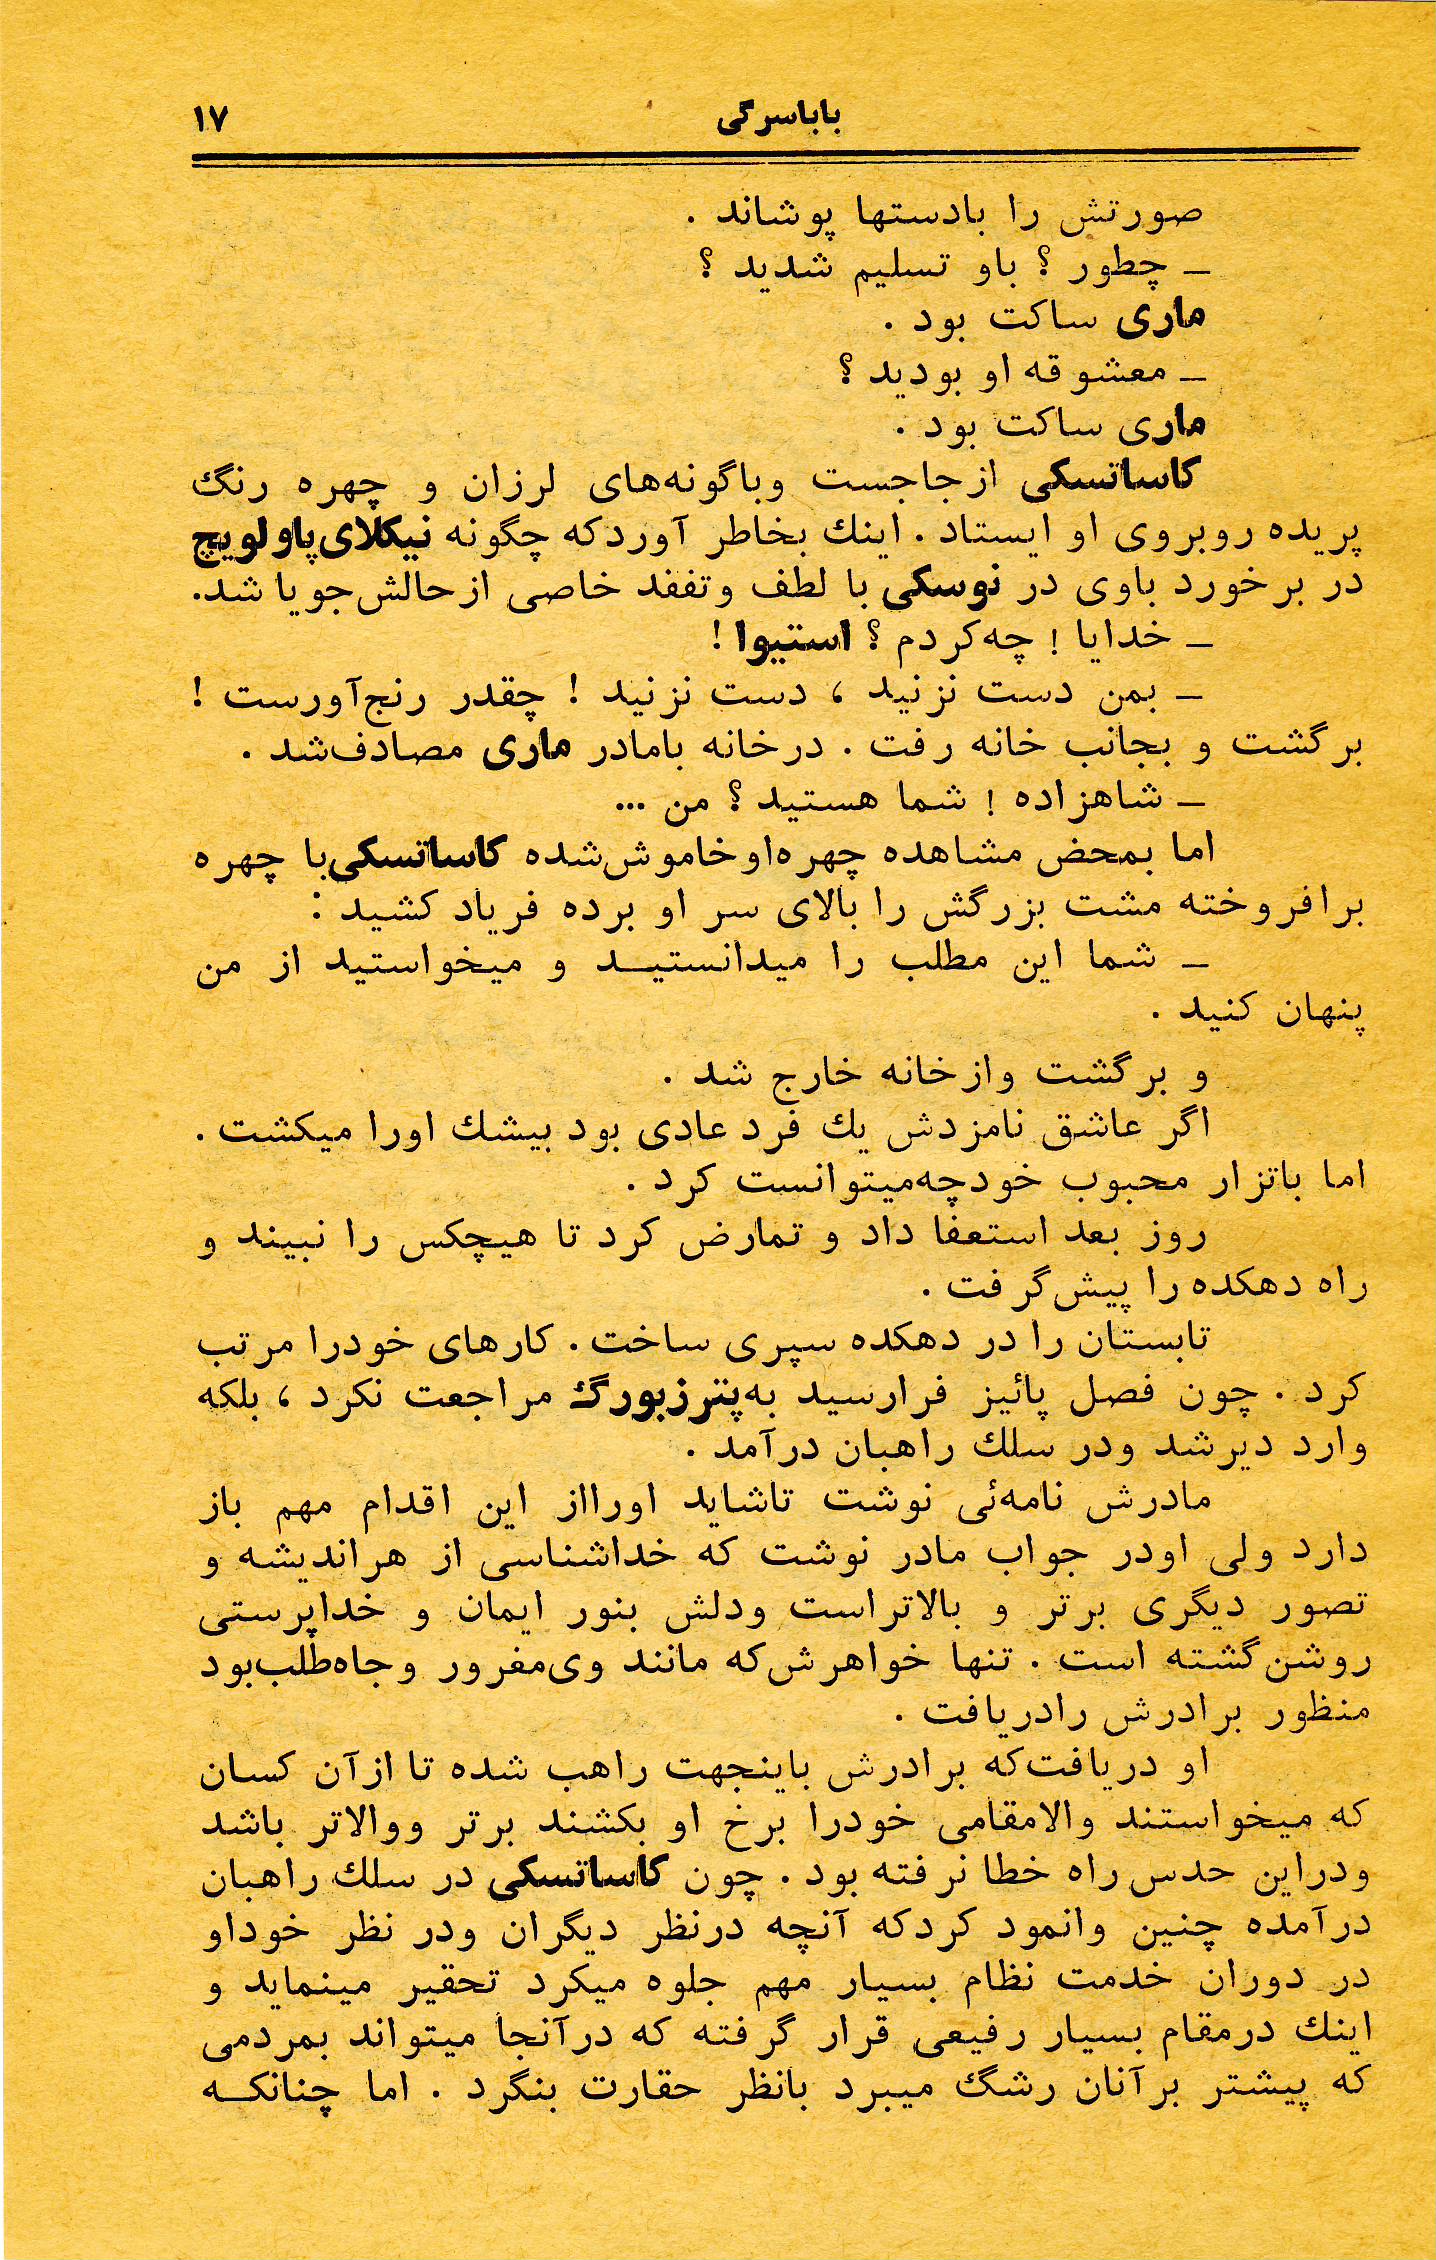 باباسرگی
۱۷
صورتش را بادستها پوشاند .
ـ چطور ؟ باو تسلیم شدید ؟
ماری ساکت بود .
ـ معشوقه او بودید ؟
ماری ساکت بود .
کاساتسکی ازجاجست وباگونه‌های لرزان و چهره رنگ
پریده روبروی او ایستاد . اینك بخاطر آوردکه چگونه نیکلای‌پاولویچ
در برخورد باوی در نوسکی با لطف وتفقد خاصی ازحالش‌جویا شد.
ـ خدایا ! چه‌کردم ؟ استیوا !
ـ بمن دست نزنید ، دست نزنید ! چقدر رنج‌آورست !
برگشت و بجانب خانه رفت . درخانه بامادر ماری مصادف‌شد .
ـ شاهزاده ! شما هستید ؟ من ...
اما بمحض مشاهده چهره‌اوخاموش‌شده کاساتسکی‌با چهره
برافروخته مشت بزرگش را بالای سر او برده فریاد کشید :
ـ شما این مطلب را میدانستیـد و میخواستید از من
پنهان کنید .
و برگشت وازخانه خارج شد .
اگر عاشق نامزدش یك فرد عادی بود بیشك اورا میکشت .
اما باتزار محبوب خودچه‌میتوانست کرد .
روز بعد استعفا داد و تمارض کرد تا هیچکس را نبیند و
راه دهکده را پیش‌گرفت .
تابستان را در دهکده سپری ساخت . کارهای خودرا مرتب
کرد . چون فصل پائیز فرارسید به‌پترزبورگ مراجعت نکرد ، بلکه
وارد دیرشد ودر سلك راهبان درآمد .
مادرش نامه‌ئی نوشت تاشاید اورااز این اقدام مهم باز
دارد ولی اودر جواب مادر نوشت که خداشناسی از هراندیشه و
تصور دیگری برتر و بالاتراست ودلش بنور ایمان و خداپرستی
روشن‌گشته است . تنها خواهرش‌که مانند وی‌مغرور وجاه‌طلب‌بود
منظور برادرش رادریافت .
او دریافت‌که برادرش باینجهت راهب شده تا ازآن کسان
که میخواستند والامقامی خودرا برخ او بکشند برتر ووالاتر باشد
ودراین حدس راه خطا نرفته بود . چون کاساتسکی در سلك راهبان
درآمده چنین وانمود کردکه آنچه درنظر دیگران ودر نظر خوداو
در دوران خدمت نظام بسیار مهم جلوه میکرد تحقیر مینماید و
اینك درمقام بسیار رفیعی قرار گرفته که درآنجا میتواند بمردمی
که پیشتر برآنان رشگ میبرد بانظر حقارت بنگرد . اما چنانکـه